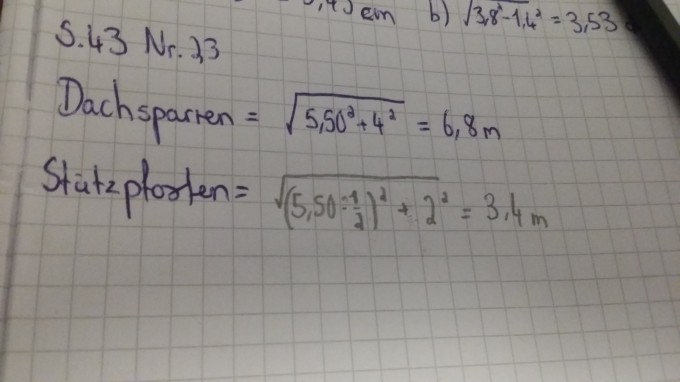 cm b) √3,8²-1,4² = 3,53
S.43 Nr. 23
Dachsparren = √5,50²+4² = 6,8m
Stützpfosten = √(5,50·½)² + 2² = 3,4m